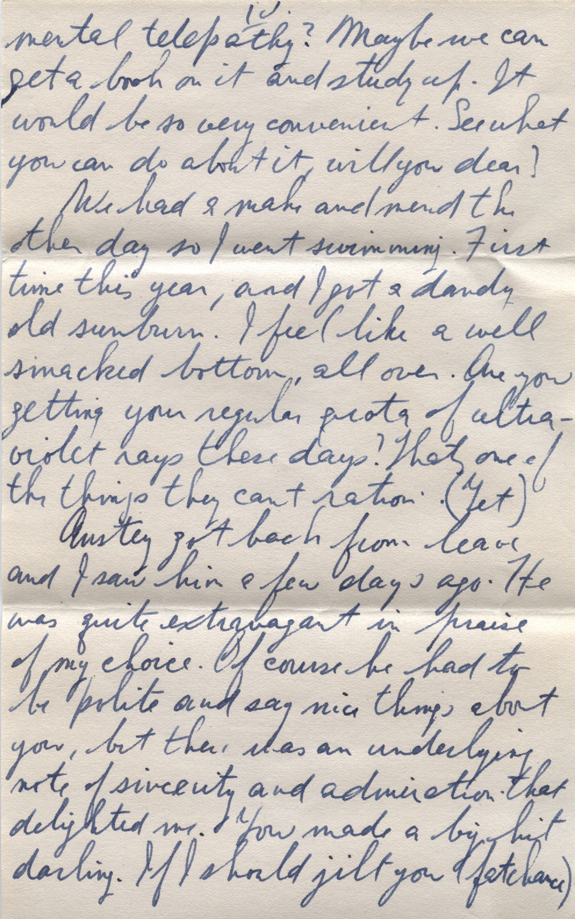 mental telepathy? Maybe we can
get a book on it and study up. It
would be so very convenient. See what
you can do about it, will you dear?
We had a make and mend the
other day so I went swimming. First
time this year, and I got a dandy
old sunburn. I feel like a well
smacked bottom, all over. Are you
getting your regular quota of ultra-
violet rays these days? That's one of
the things they can't ration. (Yet)
Austey got back from leave
and I saw him a few days ago. He
was quite extravagant in praise
of my choice. Of course he had to
be polite and say nice things about
you, but there was an underlying
note of sincerity and admiration that
delighted me. You made a big hit
darling. If I should jilt you (fat chance)